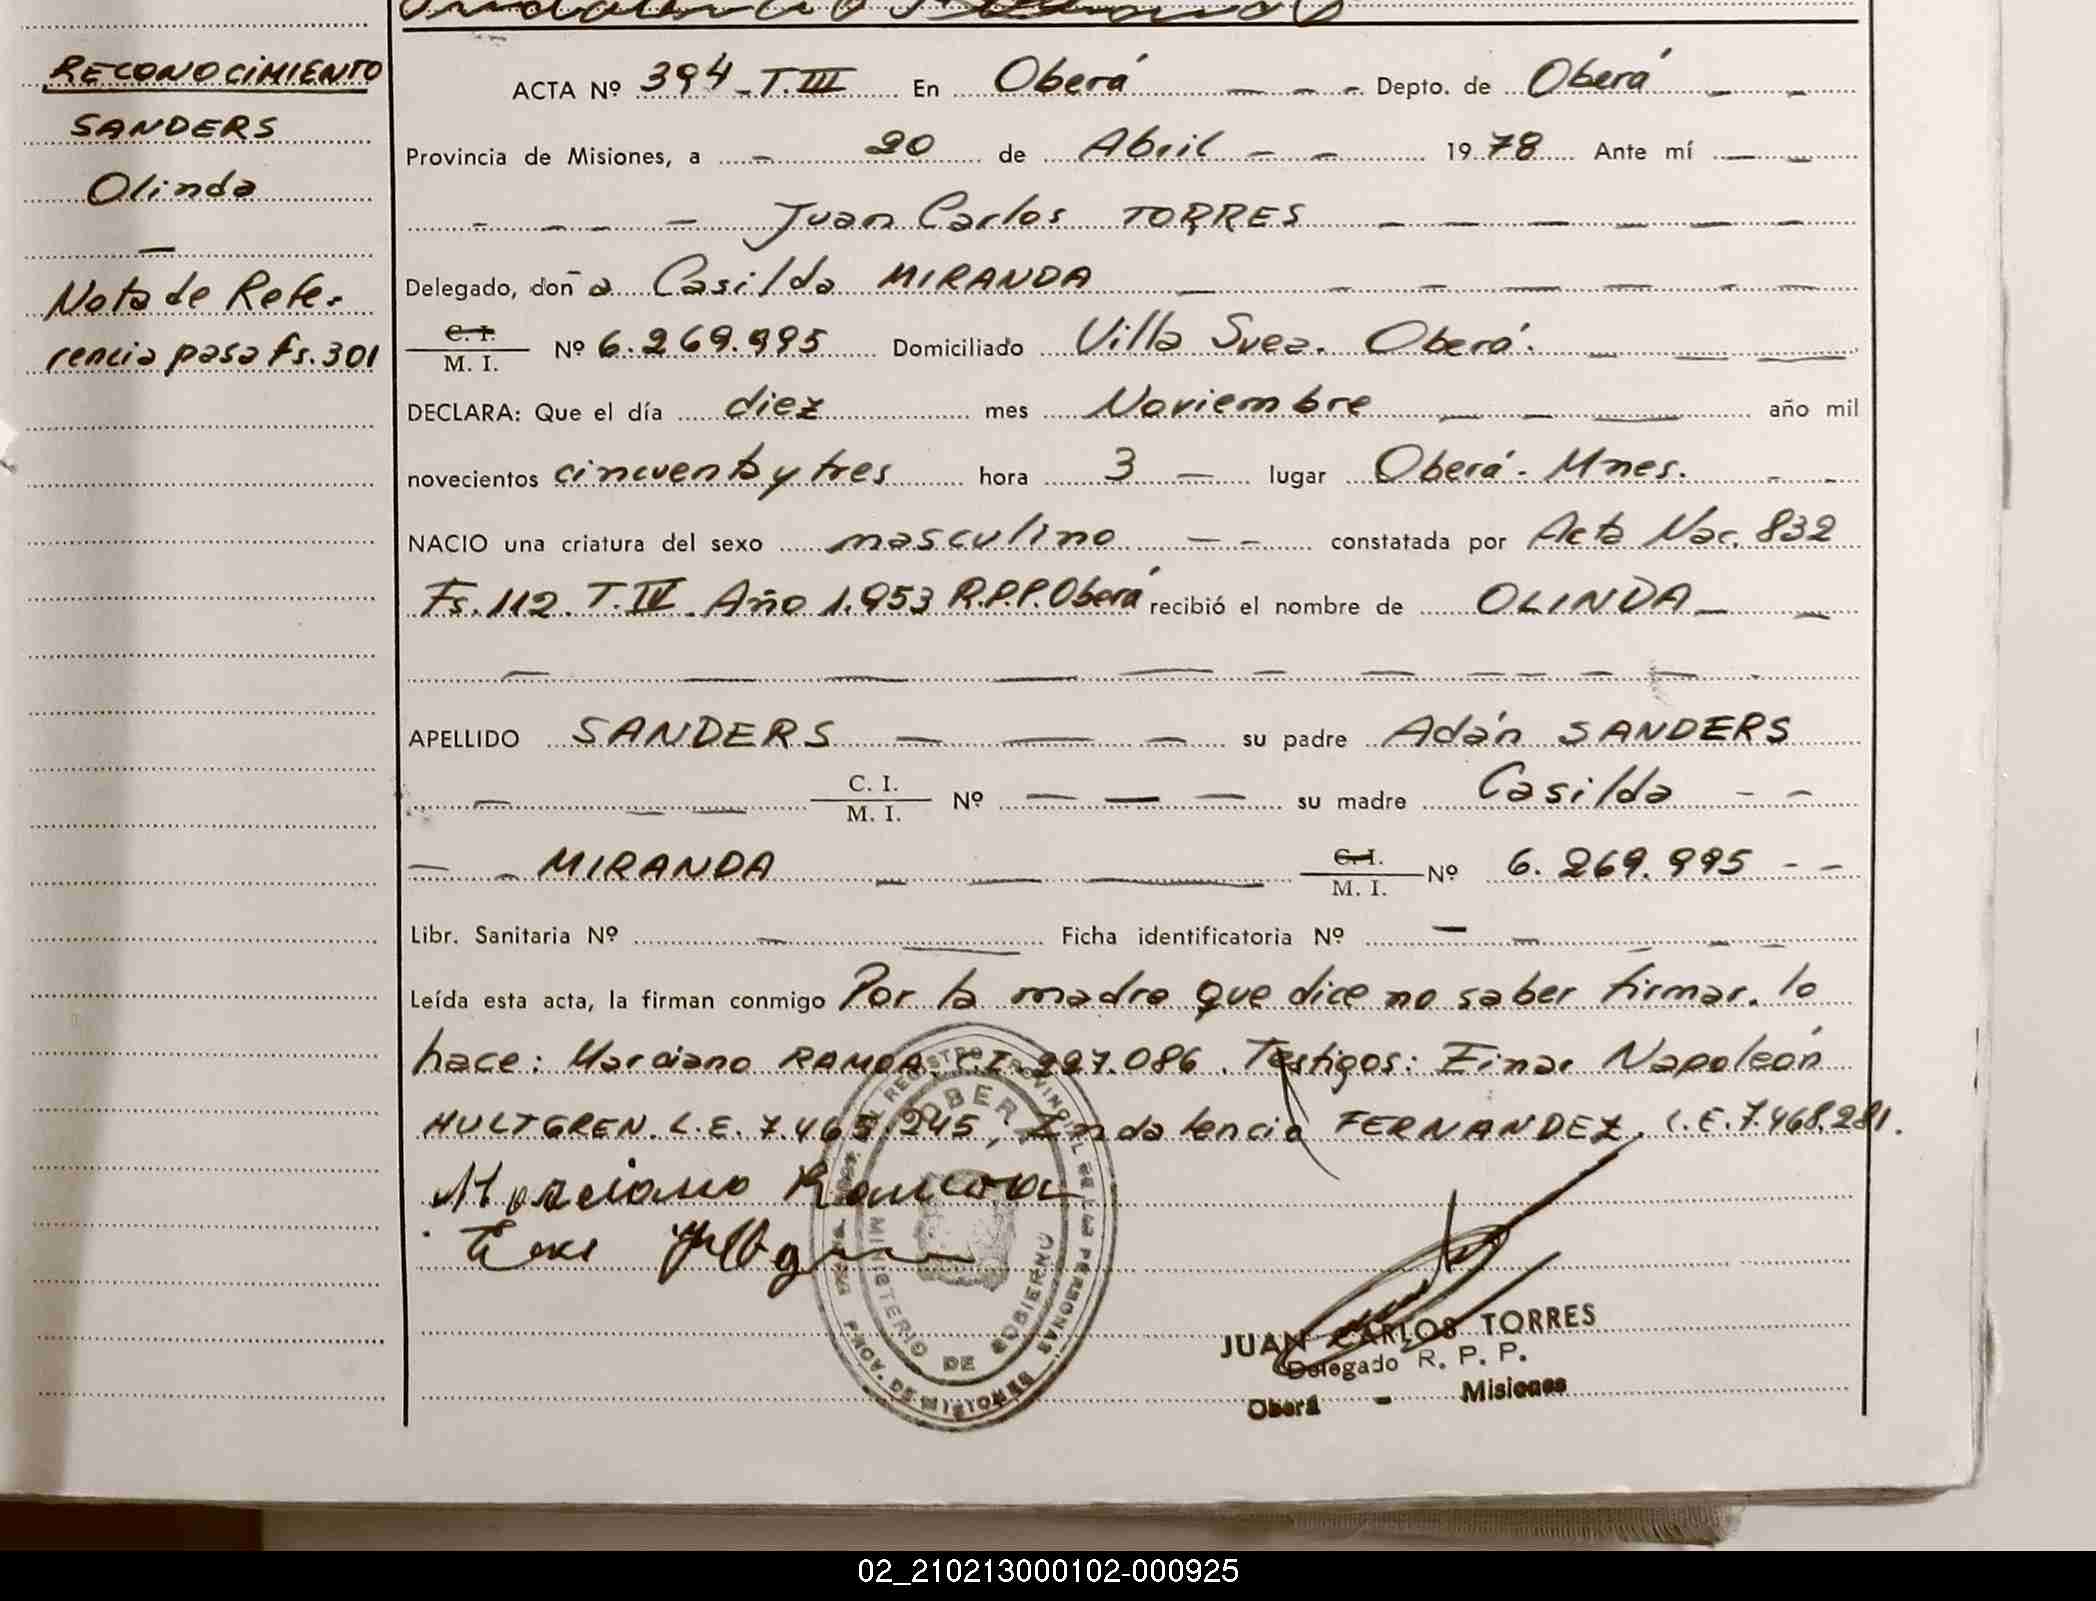 RECONOCIMIENTO
SANDERS
Olinda
Nota de Refe-
rencia pasa fs. 301
ACTA Nº 394 - T. III En Oberá - - - Depto. de Oberá - -
Provincia de Misiones, a - 20 de Abril - - 1978 Ante mí - -
- - - - Juan Carlos TORRES - - - - - -
Delegado, doña Casilda MIRANDA - - - - - - - -
C. I.
M. I. Nº 6.269.995 Domiciliado Villa Svea. Oberá. - - -
DECLARA: Que el día diez mes Noviembre - - - año mil
novecientos cincuenta y tres hora 3 - lugar Oberá - Mnes. - -
NACIO una criatura del sexo masculino - - constatada por Acta Nac. 832
Fs. 112. T. IV. Año 1.953 R.P.P. Oberá recibió el nombre de OLINDA - -
APELLIDO SANDERS - - - su padre Adán SANDERS
- - - C. I.
M. I. Nº - - - su madre Casilda - -
- - MIRANDA - - - C. I.
M. I. Nº 6.269.995 - -
Libr. Sanitaria Nº - - Ficha identificatoria Nº - - - - -
Leída esta acta, la firman conmigo Por la madre que dice no saber firmar, lo
hace: Marciano RAMOA. C.I. 227.086. Testigos: Einar Napoleón
HULTGREN. L.E. 7.465.245, Indalencio FERNANDEZ. L.E. 7.468.281.
Marciano Ramoa
OBERA
MINISTERIO DE GOBIERNO
PROV. DE MISIONES
JUAN CARLOS TORRES
Delegado R. P. P.
Oberá - Misiones
02_210213000102-000925